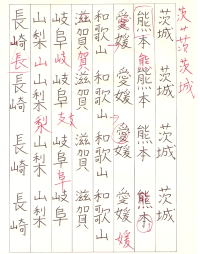 茨茨茨城
茨城 茨城 茨城 茨城
熊本 熊本 熊本 熊本
愛媛 愛媛 愛媛 愛媛 媛
和歌山 和歌山 和歌山 和歌山
滋賀 賀 滋賀 滋賀 滋賀
岐阜 岐 岐阜 支 岐阜 阜 岐阜
山梨 山 山梨 梨 山梨 山梨
長崎 長 長崎 長崎 長崎